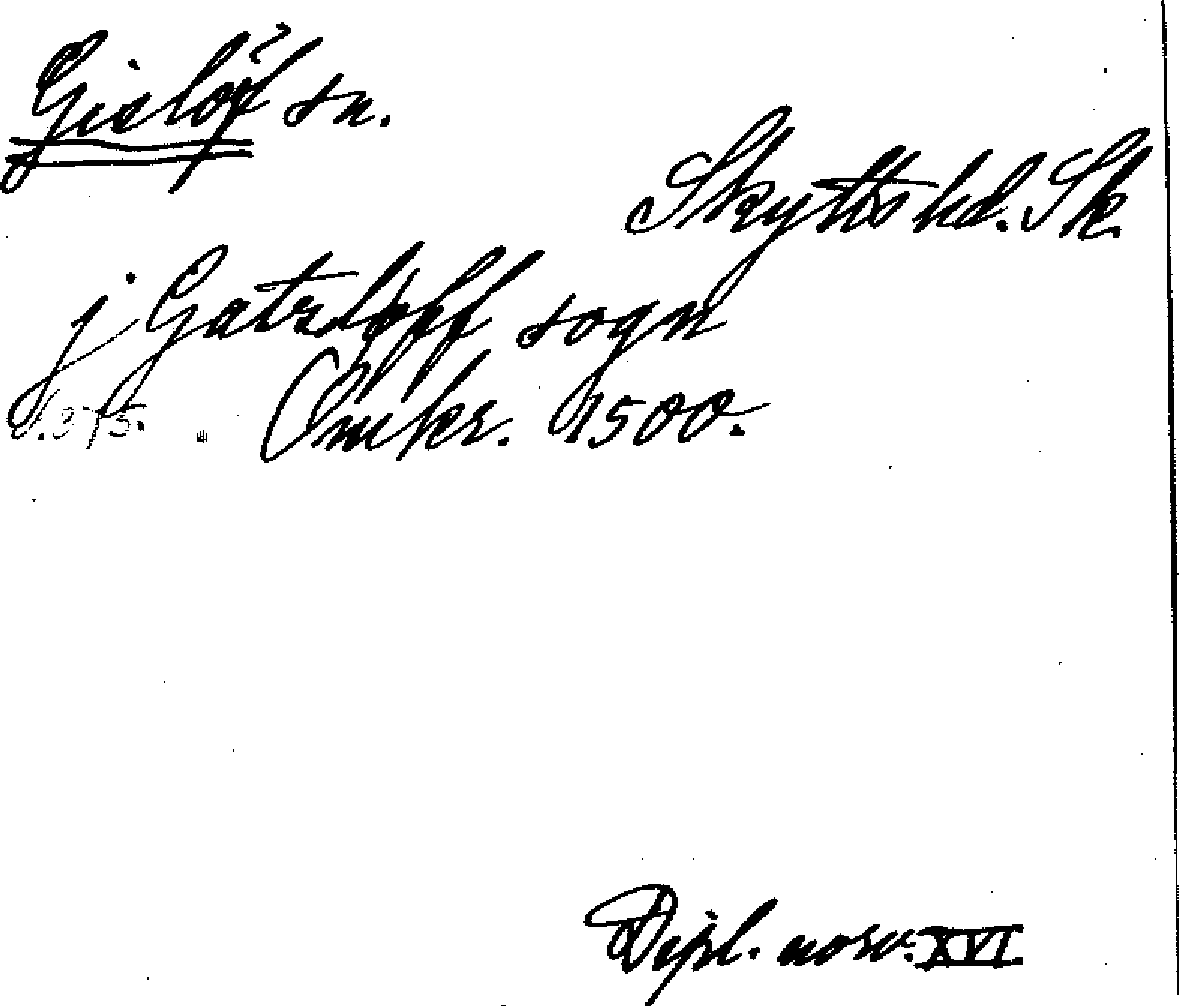 Gislöf? sn.
Skytts hd. Sk.
j Gatzløff sogn
s.375. Omkr. 1500.
Dipl. norv. XVI.